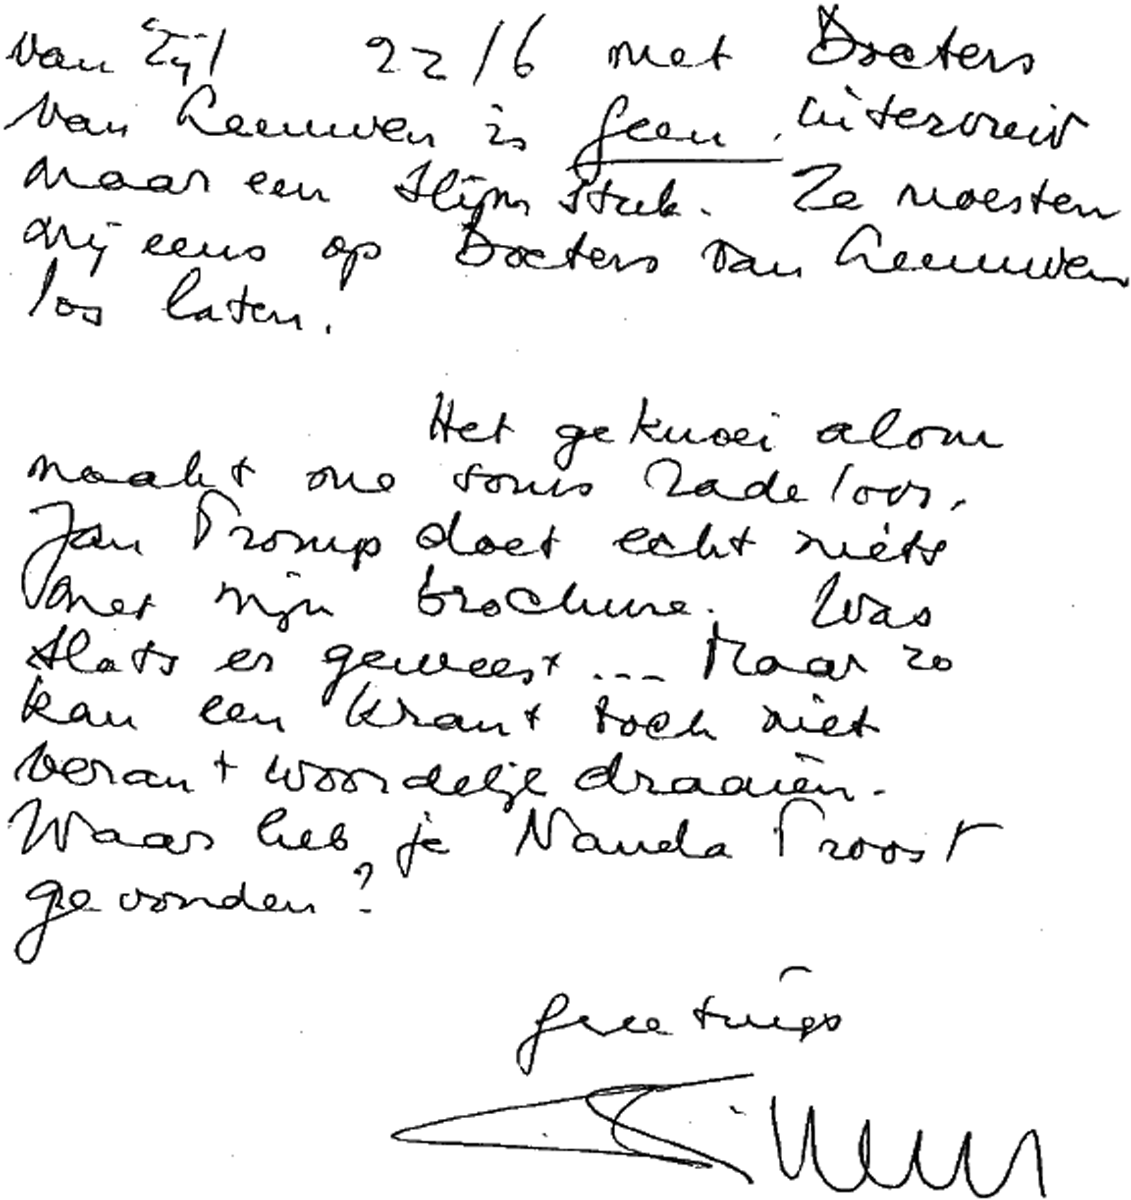 van Zijl 22/6 met Docters
van Leeuwen is geen interview
maar een slim stuk. Ze moesten
mij eens op Docters van Leeuwen
los laten.
Het geknoei alom
maakt me soms radeloos.
Jan Tromp doet echt niéts
met mijn brochure. Was
slats er geweest ... Maar zo
kan een krant toch niet
verantwoordelijk draaiën.
Waar heb je Nanda Troost
gevonden?
Greetings